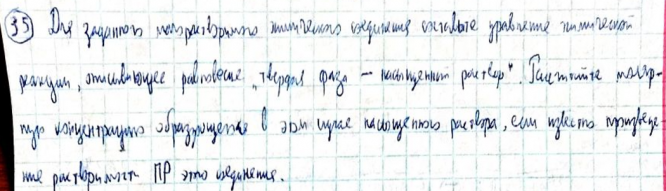 35 Для заданного малорастворимого химического соединения составьте уравнение химической
реакции, описывающее равновесие „твердая фаза – насыщенный раствор". Рассчитайте моляр-
ную концентрацию образующегося в этом случае насыщенного раствора, если известно произведе-
ние растворимости ПР этого соединения.